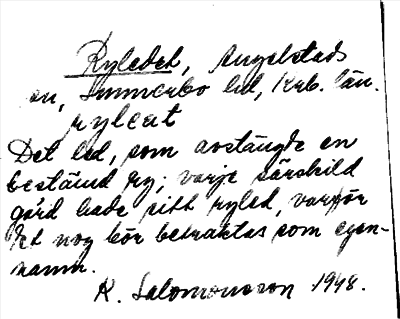 Ryledet, Angelstads
sn, Sunnerbo hd, Krb. län.
ryleat
Det led, som avstängde en
bestämd ry; varje särskild
gård hade sitt ryled, varför
det nog bör betraktas som egen-
namn.
K. Salomonsson 1948.